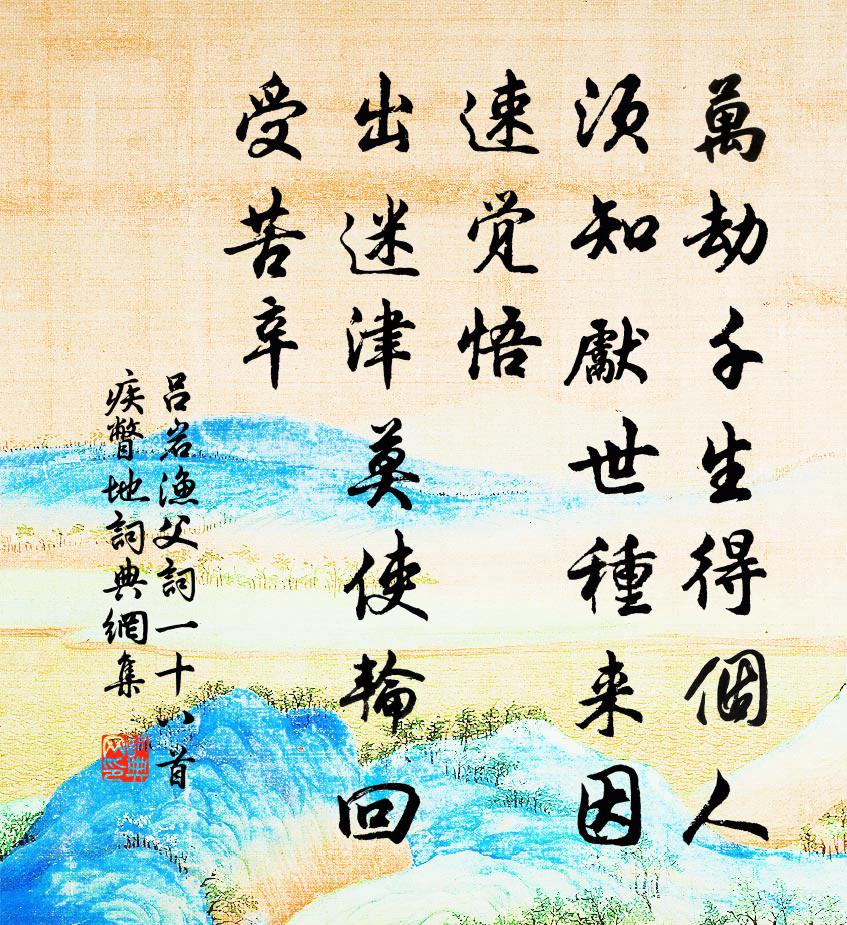 萬劫千生得個人
須知獻世種来因
速覺悟
出迷津莫使輪回
受苦辛
吕岩漁父詞一十八首
疾瞥地詞典網集